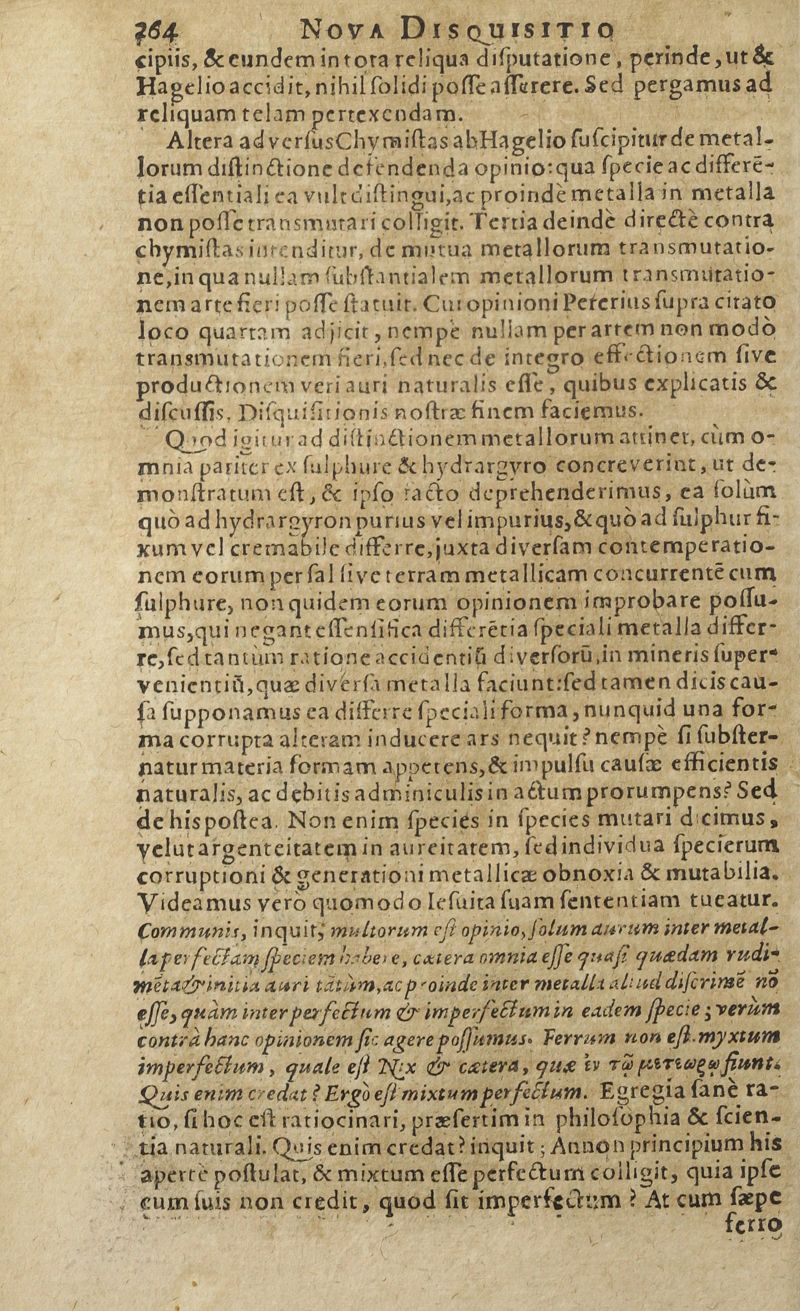 764 NOVA DISQUISITIO
cipiis, & eundem in tota reliqua diſputatione, perinde, ut &
Hagelio accidit, nihil ſolidi poſſe aſſerere. Sed pergamus ad
reliquam telam pertexendam.
Altera adverſus Chymiſtas ab Hagelio ſuſcipitur de metal-
lorum diſtinctione defendenda opinio: qua ſpecie ac differē-
tia eſſentiali ea vult diſtingui, ac proindè metalla in metalla
non poſſe transmutari colligit. Tertia deindè directè contra
chymiſtas intenditur, de mutua metallorum transmutatio-
ne, in qua nullam ſubſtantialem metallorum transmutatio-
nem arte fieri poſſe ſtatuit. Cui opinioni Pererius ſupra citato
loco quartam adjicit, nempè nullam per artem non modò
transmutationem fieri, ſed nec de integro effectionem ſive
productionem veri auri naturalis eſſe, quibus explicatis &
diſcuſſis, Diſquiſitionis noſtræ finem faciemus.
Quod igitur ad diſtinctionem metallorum attinet, cùm o-
mnia pariter ex ſulphure & hydrargyro concreverint, ut de-
monſtratum eſt, & ipſo facto deprehenderimus, ea ſolùm
quò ad hydrargyron purius vel impurius, & quò ad ſulphur fi-
xum vel cremabile differre, juxta diverſam contemperatio-
nem eorum per ſal ſive terram metallicam concurrentē cum
ſulphure, non quidem eorum opinionem improbare poſſu-
mus, qui negant eſſenſifica differētia ſpeciali metalla differ-
re, ſed tantùm ratione accidentiū diverſorū, in mineris ſuper-
venientiū, quæ diverſa metalla faciunt: ſed tamen dicis cau-
ſa ſupponamus ea differre ſpeciali forma, nunquid una for-
ma corrupta alteram inducere ars nequit? nempè ſi ſubſter-
natur materia formam appetens, & impulſu cauſæ efficientis
naturalis, ac debitis adminiculis in actum prorumpens? Sed
de his poſtea. Non enim ſpecies in ſpecies mutari dicimus,
velut argenteitatem in aureitatem, ſed individua ſpecierum
corruptioni & generationi metallicæ obnoxia & mutabilia.
Videamus verò quomodo Ieſuita ſuam ſententiam tueatur.
Communis, inquit, multorum eſt opinio, ſolum aurum inter metal-
la perfectam ſpeciem habere, cætera omnia eſſe quaſi quædam rudi-
meta & initia auri tātùm, ac proinde inter metalla aliud diſcrimē nō
eſſe, quàm inter perfectum & imperfectum in eadem ſpecie; verùm
contrà hanc opinionem ſic agere poſſumus. Ferrum non eſt myxtum
imperfectum, quale eſt Nix & cætera, quæ ἐν τῷ μετεώρῳ fiunt.
Quis enim credat? Ergò eſt mixtum perfectum. Egregia ſanè ra-
tio, ſi hoc eſt ratiocinari, præſertim in philoſophia & ſcien-
tia naturali. Quis enim credat? inquit; Annon principium his
apertè poſtulat, & mixtum eſſe perfectum colligit, quia ipſe
cum ſuis non credit, quod ſit imperfectum? At cum ſæpe
ferro